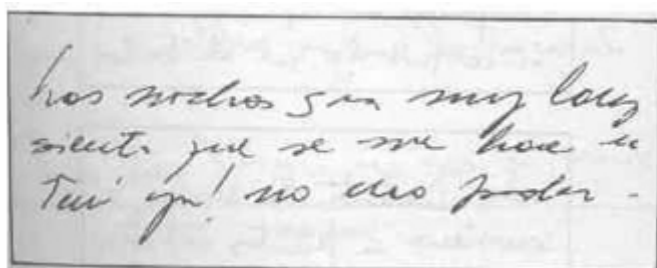 Las noches son muy larg
siento que se me hace u
no creo poder -